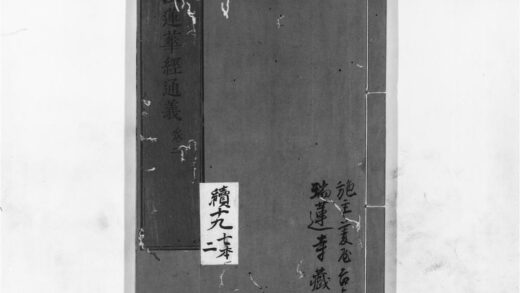 蓮華經通義
施主
瑞蓮寺藏
續十九
七本
二